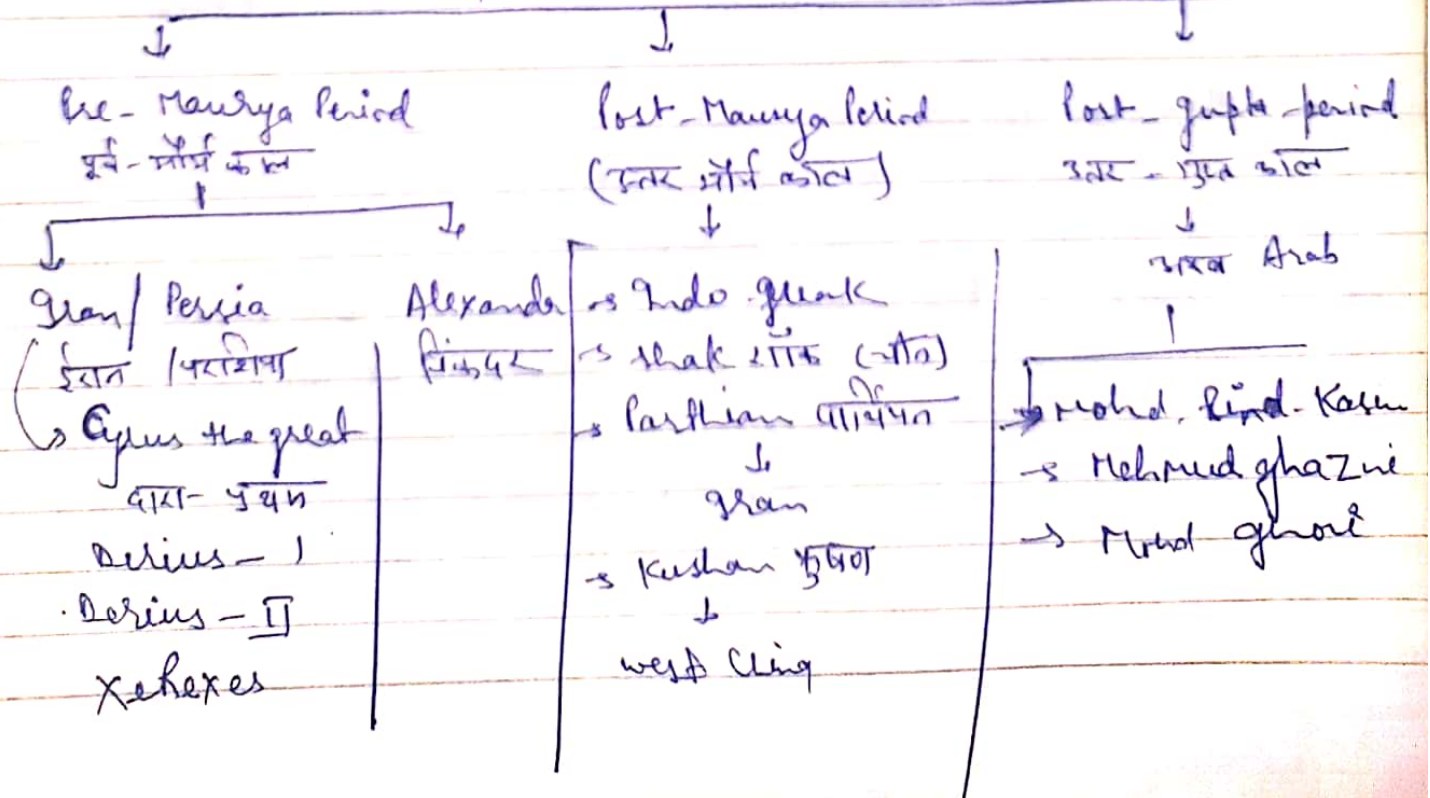 Pre - Maurya Period
पूर्व - मौर्य काल
Iran / Persia
ईरान / पराशिया
Cyrus the great
दारा - प्रथम
Derius - I
Derius - II
Xehexes
Alexander
सिकंदर
Post - Maurya Period
(उत्तर मौर्य काल)
Indo - Greek
Shak शॉक
Parthian पार्थियन
Iran
Kushan कुषाण
west China
Post - gupta - period
उत्तर - गुप्त काल
अरब Arab
Mohd. Bind - Kasim
Mehmud ghazni
Mohd ghori